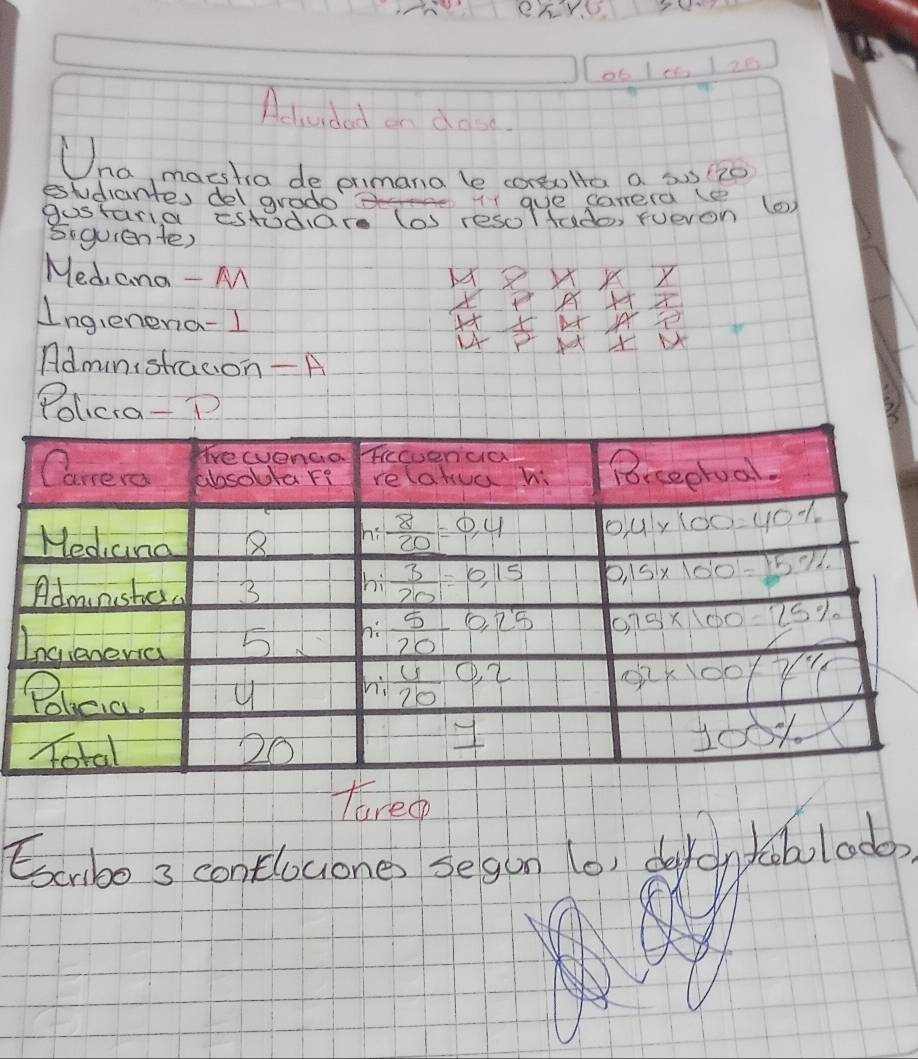 06 | 05 | 25
Actividad en clase.
Una maestra de primaria le consulta a sus 20
estudiantes del grado 11 que carrera le
gustaria estudiar los resultados fueron los
siguientes
Medicina - M
Ingieneria - I
Administracion - A
Policia - P
Carrera Frecuencia absoluta Fi Frecuencia relativa hi Porceptual.
Medicina 8 hi 8/20 = 0,4 0,4 x 100 = 40%
Administració 3 hi 3/20 = 0,15 0,15 x 100 = 15%
Ingieneria 5 hi 5/20 = 0,25 0,25 x 100 = 25%
Policia. 4 hi 4/20 0,2 0,2 x 100
Total 20 1 100%
Tarea
Escribo 3 concluciones segun los datos tabulados.